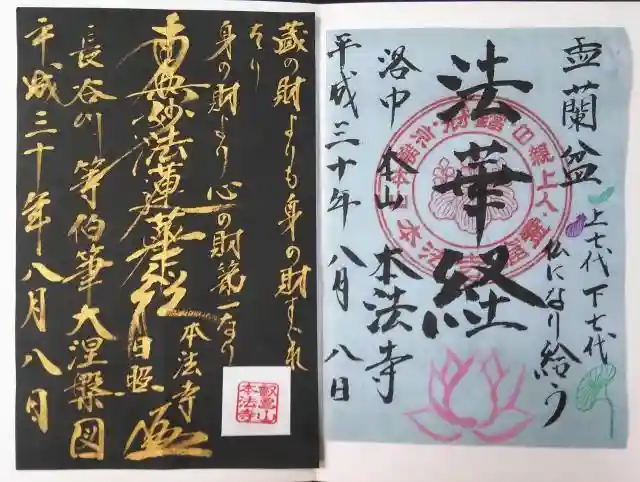 盂蘭盆
上七代下七代
仏になり給う
法華経
洛中 本山 本法寺
平成三十年八月八日
蔵の財よりも身の財すぐれ
たり
身の財より心の財第一なり
本法寺
南無妙法蓮華経
長谷川等伯筆大涅槃図
平成三十年八月八日
叡昌山
本法寺